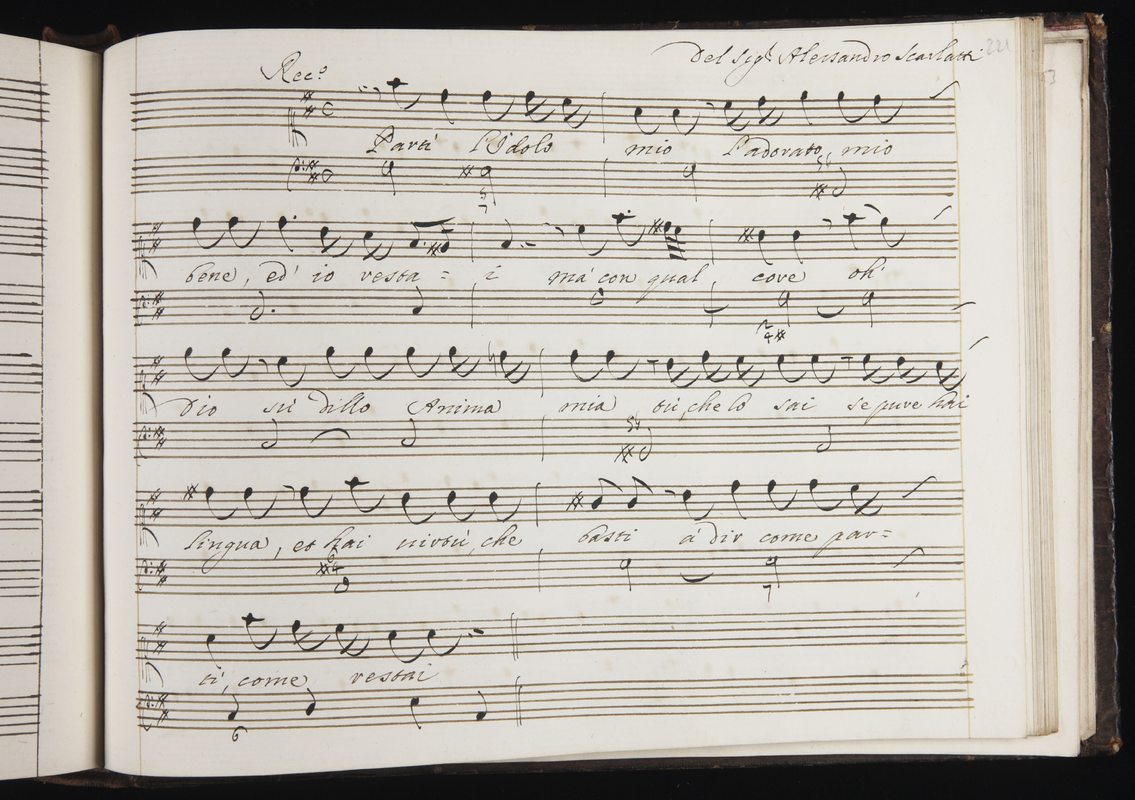 Del Sig.r Alessandro Scarlatti
221
53
Rec.o
Parti l'Idolo mio l'adorato, mio
bene, ed' io resta = i má con qual core oh'
Dio sù dillo Anima mia tù, che lo sai se pure hai
lingua, et hai virtù, che basti á dir come par=
ti, come restai